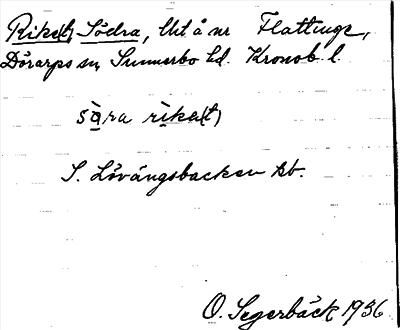 Riket, Södra, Ut å nr Flattinge,
Dörarps sn, Sunnerbo hd. Kronob. l.
sồ̀ra rìke(t)
S. Lövängsbacken bb.
O. Segerbäck 1936